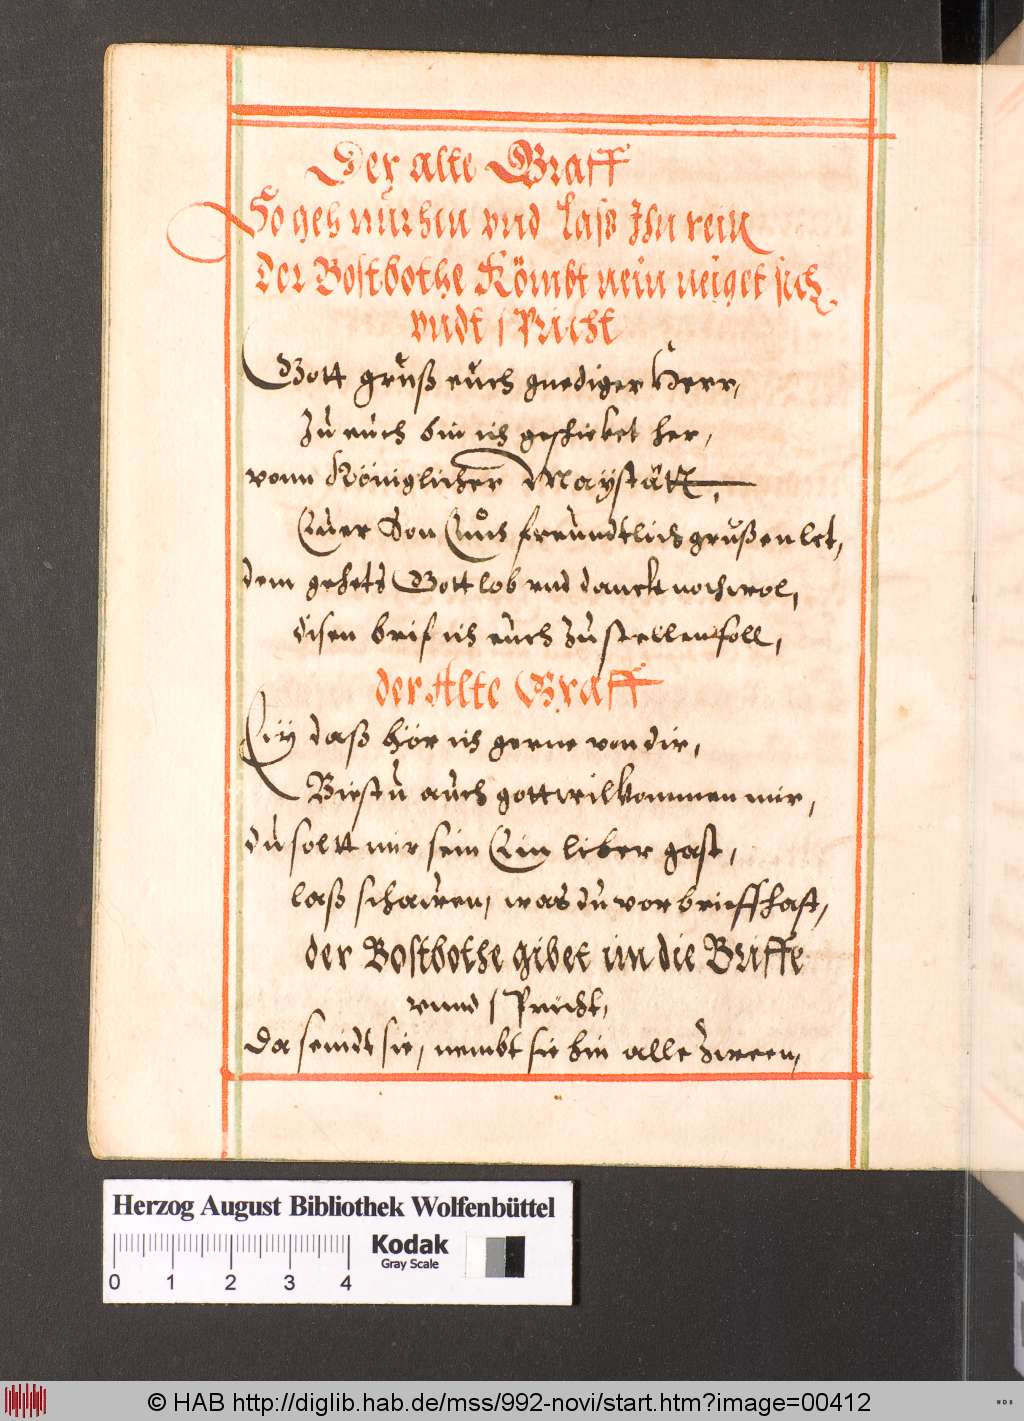 Der alte Graff
So geh nur hin vnd laß Ihn rein
Der Bostbothe Kömbt nein neiget sich
vndt spricht
Gott grüß euch gnediger Herr,
Zu euch bin ich geschicket her,
vonn Königlicher Maystätt,
Euer Son Euch freundtlich grußen let,
dem gehets Gott lob vnd danck noch wol,
disen brif ich euch zustellen soll,
der Alte Graff
Eÿ daß hör ich gerne von dir,
Biestu auch gottwilkommen mir,
du soltt mir sein Ein liber gast,
laß schauen, was du vor brieff hast,
der Bostbothe gibet im die Briffe
vnnd spricht,
Da seindt sie, nembt sie hin alle zween,
Herzog August Bibliothek Wolfenbüttel
Kodak
Gray Scale
0 1 2 3 4
© HAB http://diglib.hab.de/mss/992-novi/start.htm?image=00412